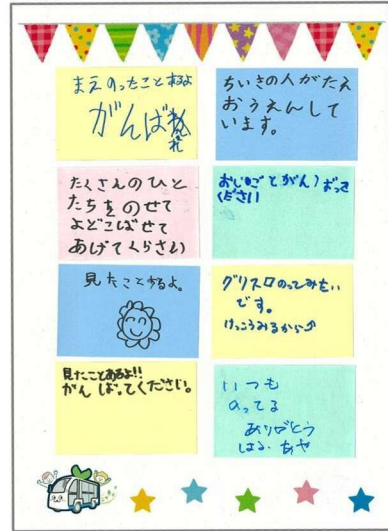 まえのったことあるよ
がんばれ
ちいきの人がたえ
おうえんして
います。
たくさんのひと
たちをのせて
よどこばせて
あげてくらさい
おしごとがん)ばっさ
ください
見たことあるよ。
グリスロのってみたい
です。
けっこうみるから
見たことあるよ!!
がんばってください。
いつも
のってる
ありがとう
はる あや